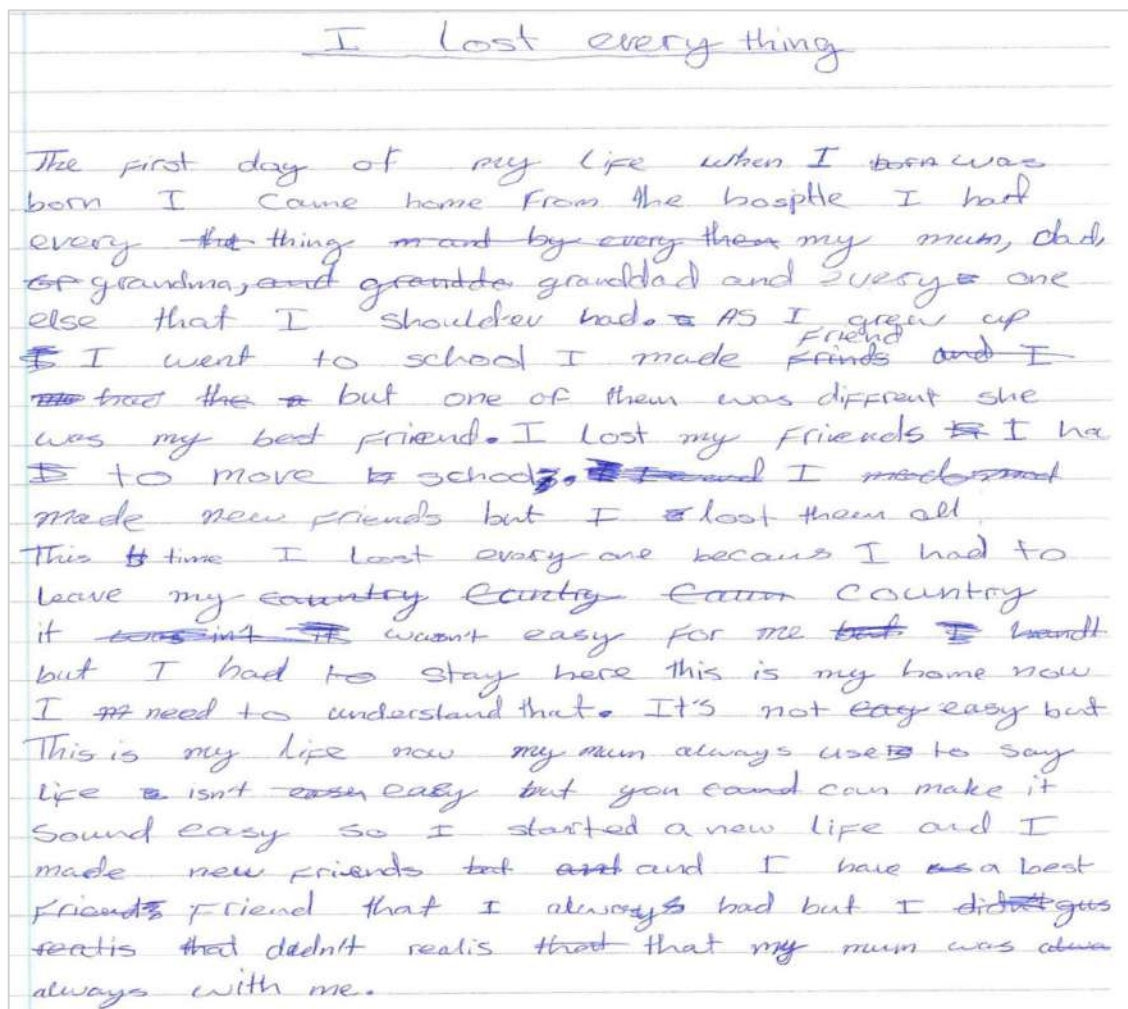 I lost every thing
The first day of my life when I born was
born I came home from the hosptle I had
every tht thing m and by every them my mum, dad,
gr grandma, and grandda granddad and every one
else that I shouldev had. As I grew up
friend
I went to school I made frinds and I
had the but one of them was diffrent she
was my best friend. I lost my friends I ha
to move school. I made mad
made new friends but I lost them all
This time I lost every one becaus I had to
leave my countrty Cantry Coun country
it wasint wasn't easy for me but I handt
but I had to stay here this is my home now
I need to understand that. It's not eay easy but
This is my life now my mum always use to say
life isn't easy easy but you cand can make it
sound easy so I started a new life and I
made new friends but and and I have a best
friends friend that I always had but I didn't gus
realis that dadn't realis that that my mum was alwa
always with me.